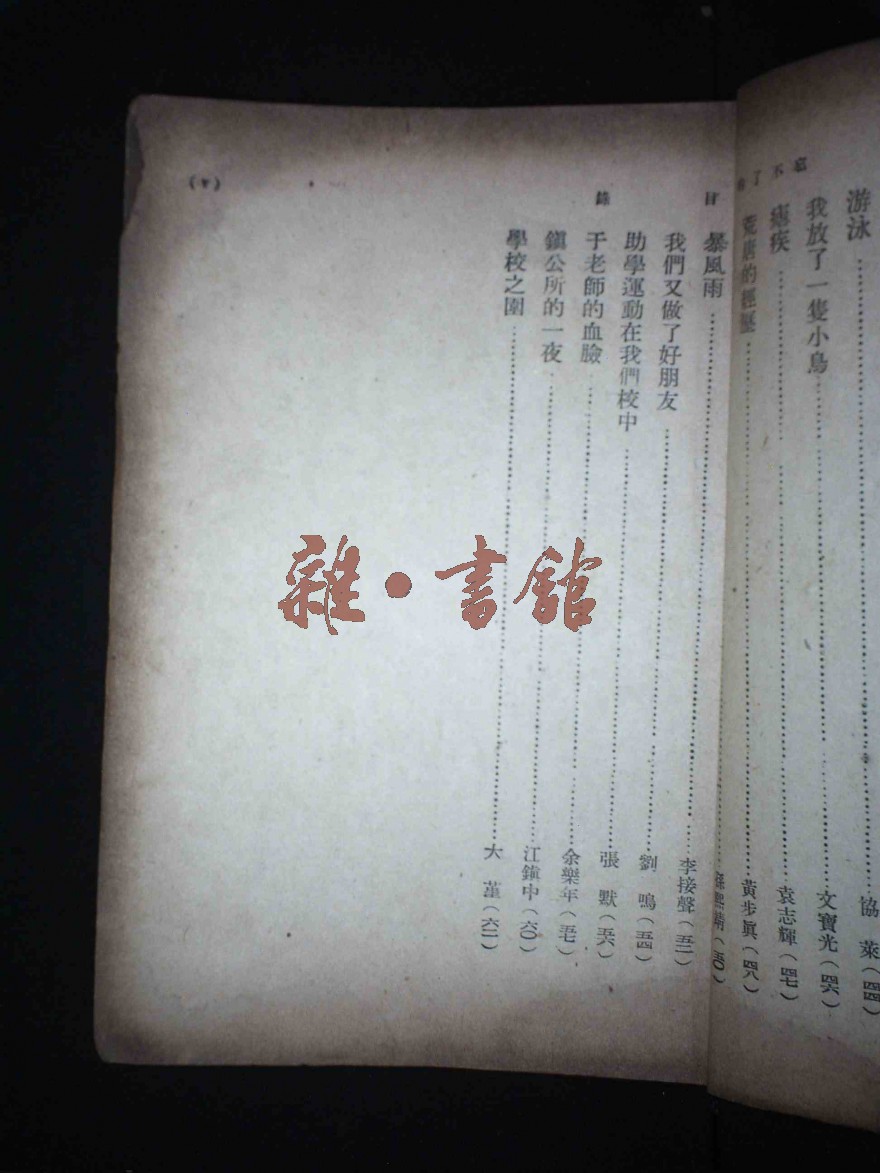 忘不了
游泳……協 萊（四四）
我放了一隻小鳥……文寶光（四六）
瘧疾……袁志輝（四七）
荒唐的經歷……黃步眞（四八）
（五〇）
目 錄
暴風雨……李接聲（五二）
我們又做了好朋友……劉 鳴（五四）
助學運動在我們校中……張 默（五六）
于老師的血臉……余樂年（五七）
鎭公所的一夜……江鎭中（六〇）
學校之圍……大 堇（六二）
雜·書館